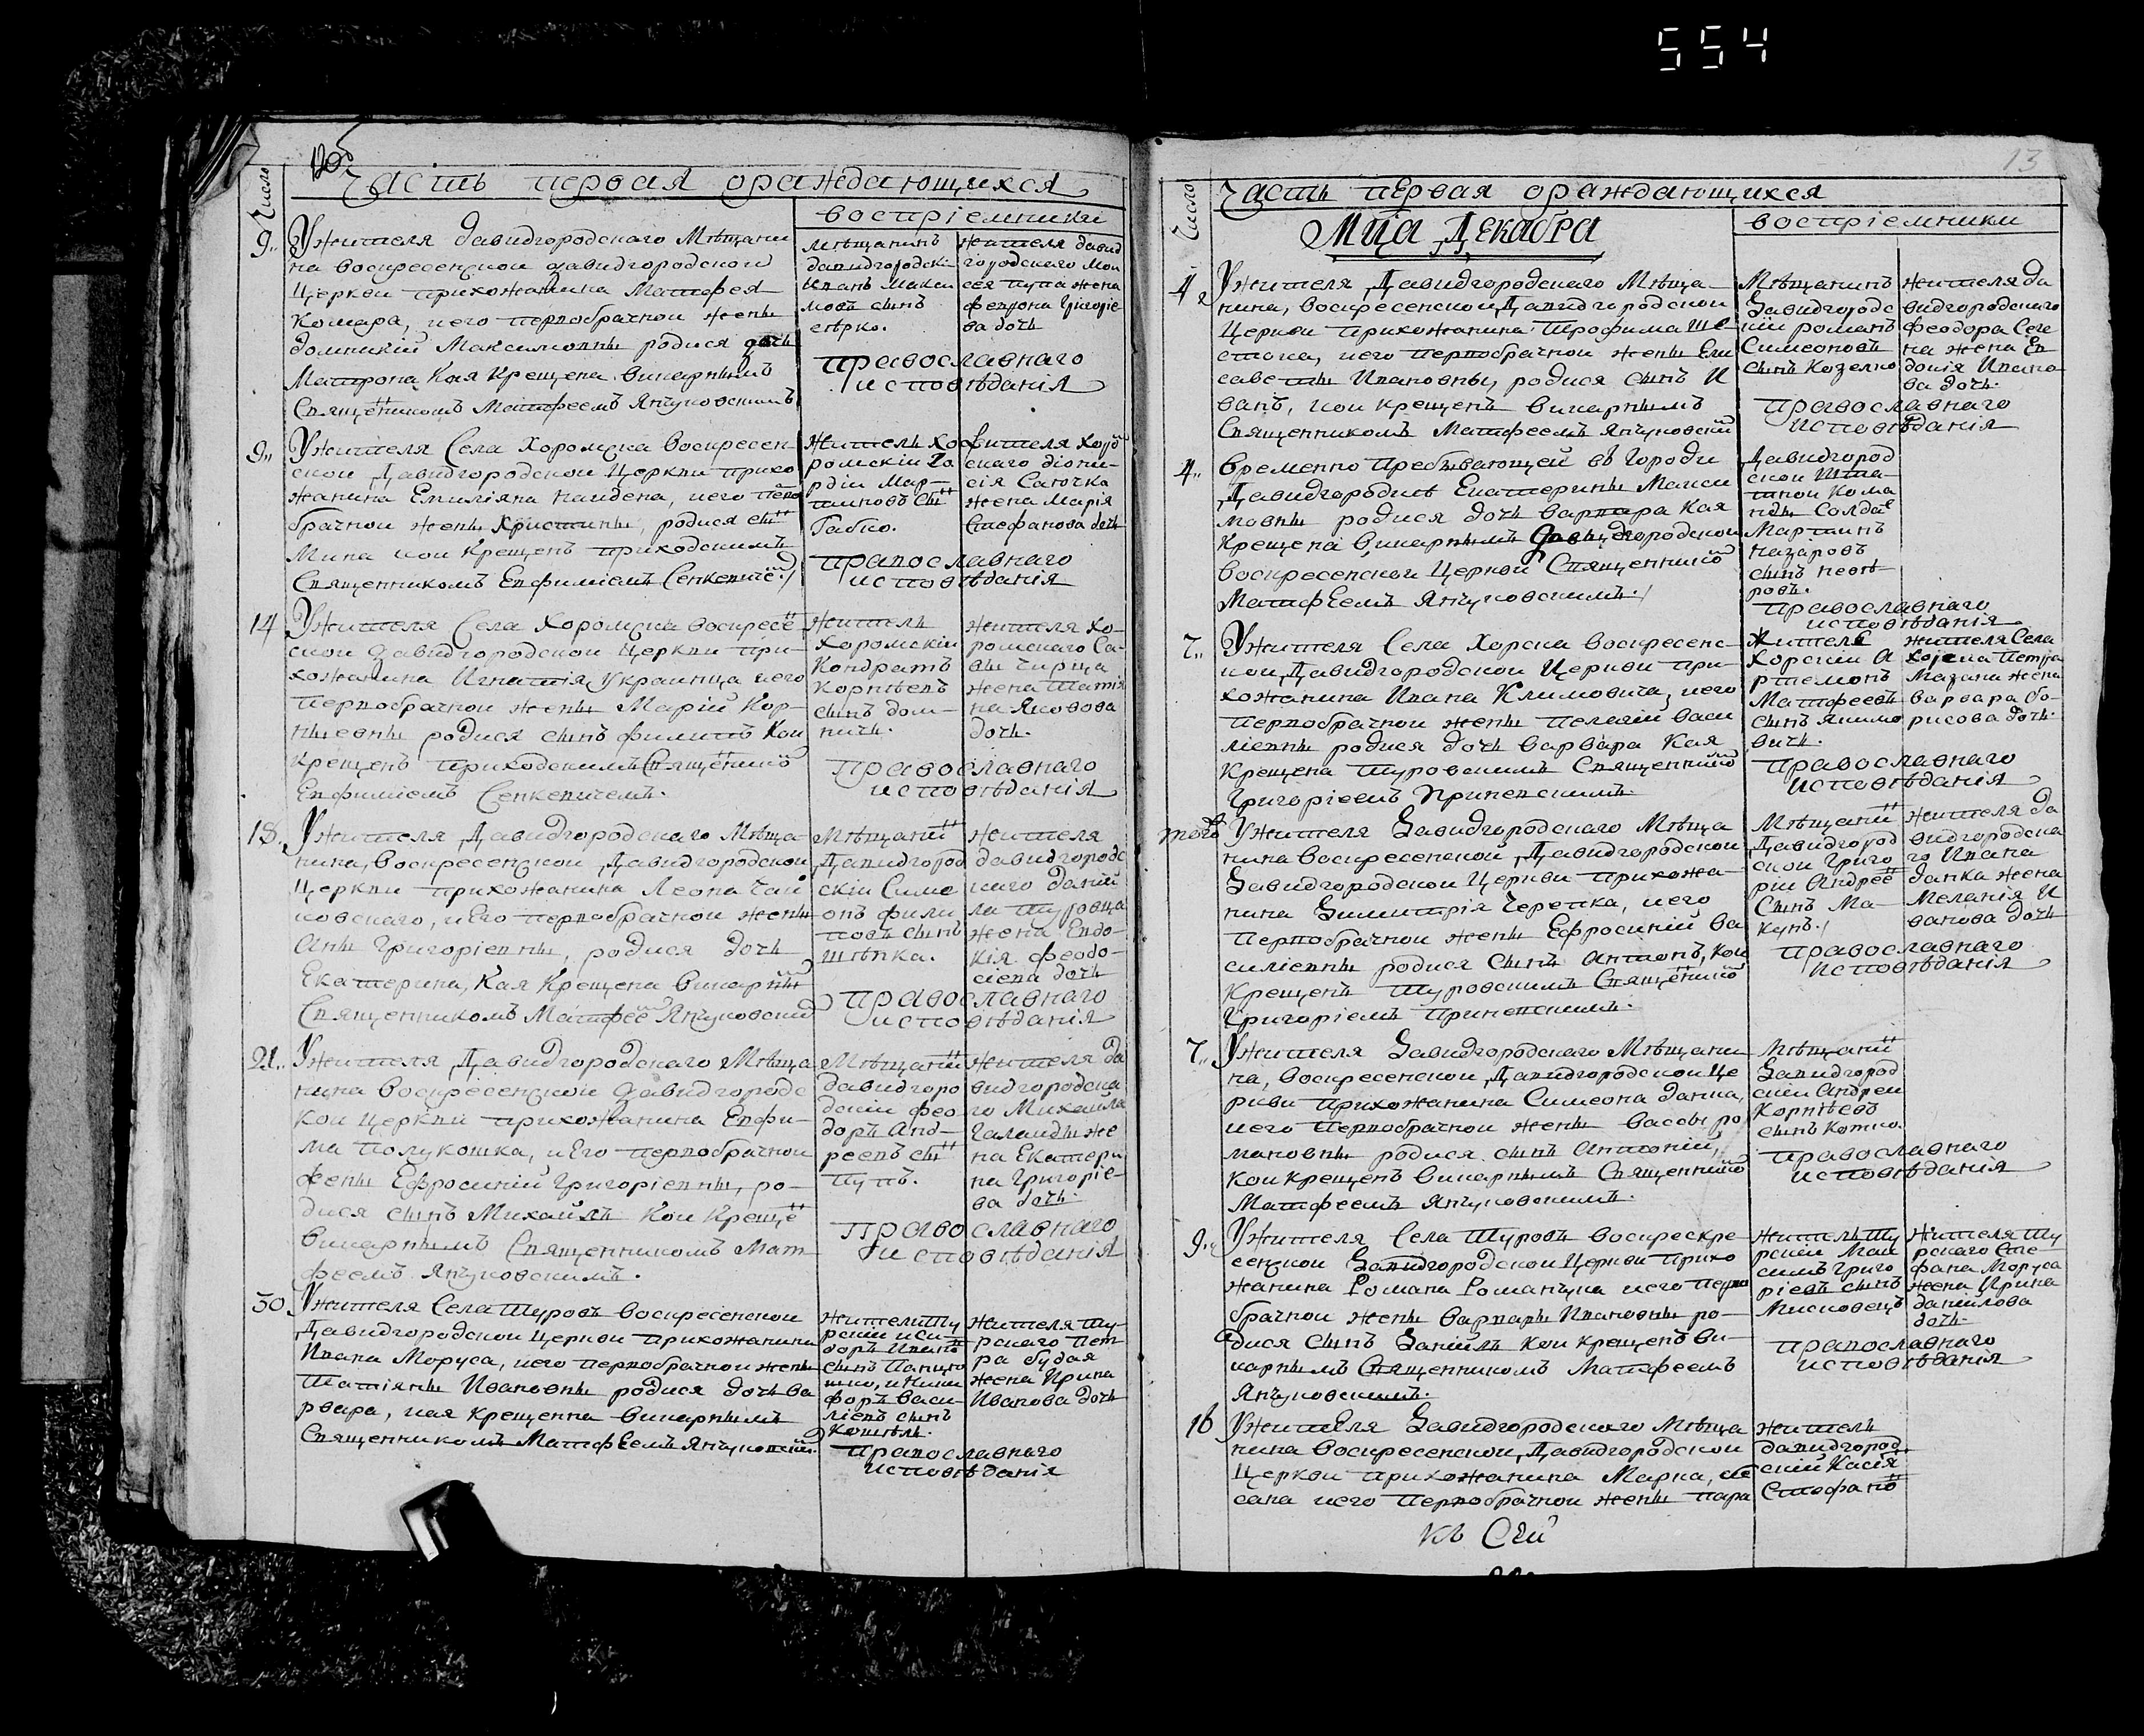 554
Число
Часть первая ораждающихся
воспріемники
9
У жителя Давидгородского Мѣщани
на воскресенской давидгородской
Церкви прихожанина Матфея
Комара, иего первобрачной жены
домникіи Максимовны родися дочь
Матрона Кая Крещена викарнымъ
Священникомъ Матфеемъ Янчуковскимъ
мѣщанинъ
давидгородскі
Иванъ Макси
мовъ сынъ
жителя давид
городского Мои
сея жена
феврона Григорie
ва дочь
православнаго
исповѣданія
9
У жителя Села Хоромска воскресен
ской Давидгородской Церкви прихо
жанина Емиліяна наидена, иего перво
брачной жены Христины, родися сынъ
Мина кои Крещенъ приходскимъ
Священникомъ Евфиміемъ Сенкевиче
житель Хо
ромскіи Го
рдіи Мар
тиновъ сынъ
Габко.
жителя хоро
скаго діони
сія Саночка
жена Марія
Стефанова дочь
православнаго
исповѣданія
14
У жителя Села Хоромска воскресе
ской давидгородской Церкви при
хожанина Игнатія Украинца иего
первобрачной жены Маріи Кор
нѣевны родися сынъ филипъ Кои
Крещенъ приходскимъ Священико
Евфиміемъ Сенкевичемъ.
житель
Хоромскіи
Кондратъ
Корнѣевъ
сынъ дом
ничь.
жителя Хо
ромского Са
вы Чирца
жена Татія
на Яковова
дочь.
православнаго
исповѣданія
18
У жителя Давидгородскаго Мѣща
нина, воскресенской Давидгородской
Церкви прихожанина Леона Чаи
ковскаго, иЕго первобрачной жены
Анны Григоріевны, родися дочь
Екатерина, Кая Крещена викарны
Священникомъ Матфее Янчуковски
Мѣщани
Давидгород
скіи Симе
онъ фили
повъ сынъ
жителя
давидгородс
кого Даніи
ла Туровца
жена Евдо
кія феодо
сіева дочь
православнаго
исповѣданія
21
У жителя Давидгородскаго Мѣща
нина воскресенской давидгородс
кой Церкви прихожанина Евфи
ма полукошка, иЕго первобрачной
жены Ефросиніи Григоріевны, ро
дися сынъ Михаилъ Кои Креще
викарнымъ Священникомъ Мат
феемъ Янчуковскимъ.
Мѣщани
давидгоро
дскіи фео
доръ Анд
реевъ сы
жителя Да
видгородска
го Михаила
Галанды же
на Екатери
на Григоріе
ва дочь
православнаго
исповѣданія
30
У жителя Села Туровъ воскресенской
Давидгородской Церкви прихожанина
Ивана Моруса, иего первобрачной жены
Татіяны Ивановны родися дочь ва
рвара, кая крещенна викарнымъ
Священникомъ Матфеемъ Янчуковски
жители Ту
рскіи иси
доръ Ивано
сынъ
форъ Васи
ліевъ сынъ
жителя Ту
рскаго пет
ра будая
жена Ирина
Иванова дочь
православнаго
исповѣданія
13
Число
Часть первая ораждающихся
Мца Декабра
воспріемники
4
У жителя Давидгородскаго Мѣща
нина, воскресенской Давидгородской
Церкви прихожанина Трофима Ше
стака, иего первобрачной жены Ели
саветы Ивановны, родися сынъ И
ванъ, кои крещенъ викарнымъ
Священникомъ Матфеемъ Янчуковски
Мѣщанинъ
Давидгородс
кіи романъ
Симеоновъ
сынъ Козелко
жителя да
видгородскаго
феодора Селе
на жена Ев
докія Ивано
ва дочь.
православнаго
исповѣданія
4
Временно пребывающей въ городи
Давидгородкѣ Екатерины Макси
мовны родися дочь варвара Кая
Крещена викарнымъ Давидгородской
воскресенской Церкви Священнико
Матфеемъ Янчуковскимъ.
Давидгород
ской Шта
тной Кома
нды Солда
Мартинъ
назаровъ
сынъ
православнаго
исповѣданія
7
У жителя Села Хорска воскресенс
кои Давидгородской Церкви при
хожанина Ивана Климовича, иего
первобрачной жены пелагіи васи
ліевны родися дочь варвара Кая
Крещена Туровскимъ Священнико
Григоріемъ
житель
хорскіи А
ртемонъ
Матфеевъ
сынъ Яким
вичь.
жителя Села
хорска Петра
Мазана жена
варвара бо
рисова дочь.
православнаго
исповѣданія
того
У жителя Давидгородскаго Мѣща
нина воскресенской Давидгородской
Давидгородской Церкви прихожа
нина Димитрія Черепка, иего
первобрачной жены Ефросиніи Ва
силіевны родися сынъ Антонъ, кои
крещенъ Туровскимъ Священико
Григоріемъ
Мѣщани
Давидгород
скои Григо
рии Андрее
Сынъ Ма
кунъ.
жителя Да
видгородска
го Ивана
данка жена
Меланія И
ванова дочь
православнаго
исповѣданія
7
У жителя Давидгородскаго Мѣщани
на, воскресенской Давидгородской Це
ркви прихожанина Симеона Данка,
иего первобрачной жены Васовы ро
мановны родися сынъ Антоній,
кои крещенъ викарнымъ Священнико
Матфеемъ Янчуковскимъ.
Мѣщани
Давидгород
скіи Андреи
Корнѣевъ
сынъ Котко.
православнаго
исповѣданія
9
У жителя Села Туровъ воскрескре
сенской Давидгородской Церкви прихо
жанина Романа Романчука иего перво
брачной жены варвары Ивановны ро
дися сынъ Даніилъ кои крещенъ ви
карнымъ Священникомъ Матфеемъ
Янчуковскимъ.
житель Ту
рскіи Мак
симъ Григо
ріевъ сынъ
Мисковецъ
жителя Ту
рскаго Сте
фана Моруса
жена Ирина
данилова
дочь.
православнаго
исповѣданія
16
У жителя Давидгородскаго Мѣща
нина воскресенской Давидгородской
Церкви прихожанина Марка,
иего первобрачной жены пара
житель
давидгород
скіи Касія
Стефано